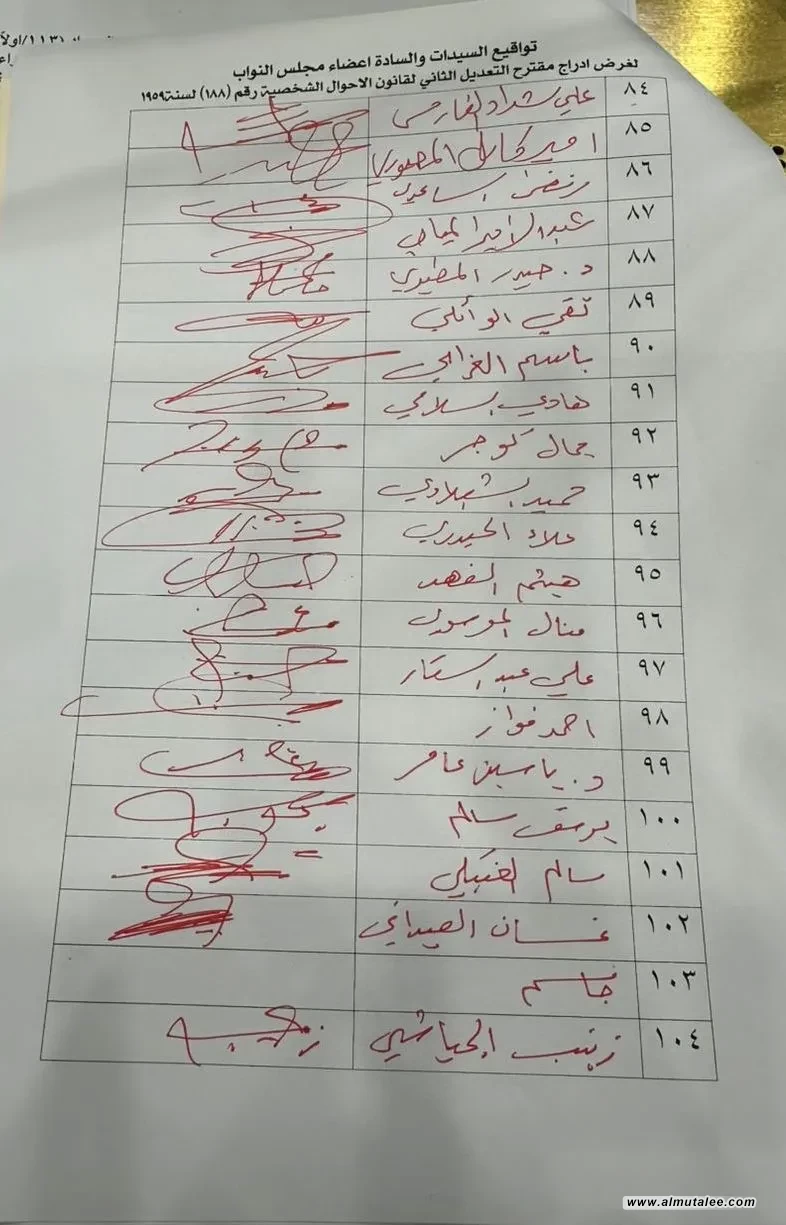 ١١٣١/اولا
تواقيع السيدات والسادة اعضاء مجلس النواب
لغرض ادراج مقترح التعديل الثاني لقانون الاحوال الشخصية رقم (١٨٨) لسنة١٩٥٩
٨٤ علي شداد الفارس
٨٥ امير كامل المعموري
٨٦ الساعدي
٨٧ عبد الامير المياحي
٨٨ د. حيدر المطيري
٨٩ تقي الوائلي
٩٠ باسم الغرابي
٩١ هادي السلامي
٩٢ جمال كوجر
٩٣ حميد الشبلاوي
٩٤ علاء الحيدري
٩٥ هيثم الفهد
٩٦ منال الموسوي
٩٧ علي عبد الستار
٩٨ احمد فواز
٩٩ د. ياسين عامر
١٠٠ يوسف سالم
١٠١ سالم العنبكي
١٠٢ غسان العيداني
١٠٣ جاسم
١٠٤ زينب الحياشي
www.almutalee.com